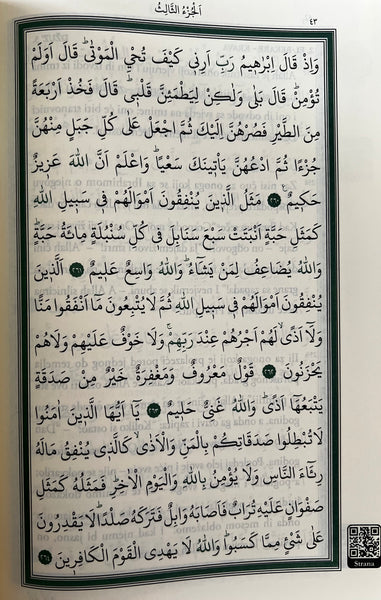 اَلْجُزْءُ الثَّالِثُ
٤٣
وَاِذْ قَالَ اِبْرٰه۪يمُ رَبِّ اَرِن۪ي كَيْفَ تُحْيِ الْمَوْتٰىۜ قَالَ اَوَلَمْ
تُؤْمِنْۜ قَالَ بَلٰى وَلٰكِنْ لِيَطْمَئِنَّ قَلْب۪يۜ قَالَ فَخُذْ اَرْبَعَةً
مِنَ الطَّيْرِ فَصُرْهُنَّ اِلَيْكَ ثُمَّ اجْعَلْ عَلٰى كُلِّ جَبَلٍ مِنْهُنَّ
جُزْءًا ثُمَّ ادْعُهُنَّ يَأْت۪ينَكَ سَعْيًاۜ وَاعْلَمْ اَنَّ اللّٰهَ عَز۪يزٌ
حَك۪يمٌ۟ ٢٦٠ مَثَلُ الَّذ۪ينَ يُنْفِقُونَ اَمْوَالَهُمْ ف۪ي سَب۪يلِ اللّٰهِ
كَمَثَلِ حَبَّةٍ اَنْبَتَتْ سَبْعَ سَنَابِلَ ف۪ي كُلِّ سُنْبُلَةٍ مِائَةُ حَبَّةٍۜ
وَاللّٰهُ يُضَاعِفُ لِمَنْ يَشَٓاءُۜ وَاللّٰهُ وَاسِعٌ عَل۪يمٌ ٢٦١ اَلَّذ۪ينَ
يُنْفِقُونَ اَمْوَالَهُمْ ف۪ي سَب۪يلِ اللّٰهِ ثُمَّ لَا يُتْبِعُونَ مَٓا اَنْفَقُوا مَنًّا
وَلَٓا اَذًىۙ لَهُمْ اَجْرُهُمْ عِنْدَ رَبِّهِمْۚ وَلَا خَوْفٌ عَلَيْهِمْ وَلَا هُمْ
يَحْزَنُونَ ٢٦٢ قَوْلٌ مَعْرُوفٌ وَمَغْفِرَةٌ خَيْرٌ مِنْ صَدَقَةٍ
يَتْبَعُهَٓا اَذًىۜ وَاللّٰهُ غَنِيٌّ حَل۪يمٌ ٢٦٣ يَٓا اَيُّهَا الَّذ۪ينَ اٰمَنُوا
لَا تُبْطِلُوا صَدَقَاتِكُمْ بِالْمَنِّ وَالْاَذٰىۙ كَالَّذ۪ي يُنْفِقُ مَالَهُ
رِئَٓاءَ النَّاسِ وَلَا يُؤْمِنُ بِاللّٰهِ وَالْيَوْمِ الْاٰخِرِۜ فَمَثَلُهُ كَمَثَلِ
صَفْوَانٍ عَلَيْهِ تُرَابٌ فَاَصَابَهُ وَابِلٌ فَتَرَكَهُ صَلْدًاۜ لَا يَقْدِرُونَ
عَلٰى شَيْءٍ مِمَّا كَسَبُواۜ وَاللّٰهُ لَا يَهْدِي الْقَوْمَ الْكَافِر۪ينَ ٢٦٤
Strana